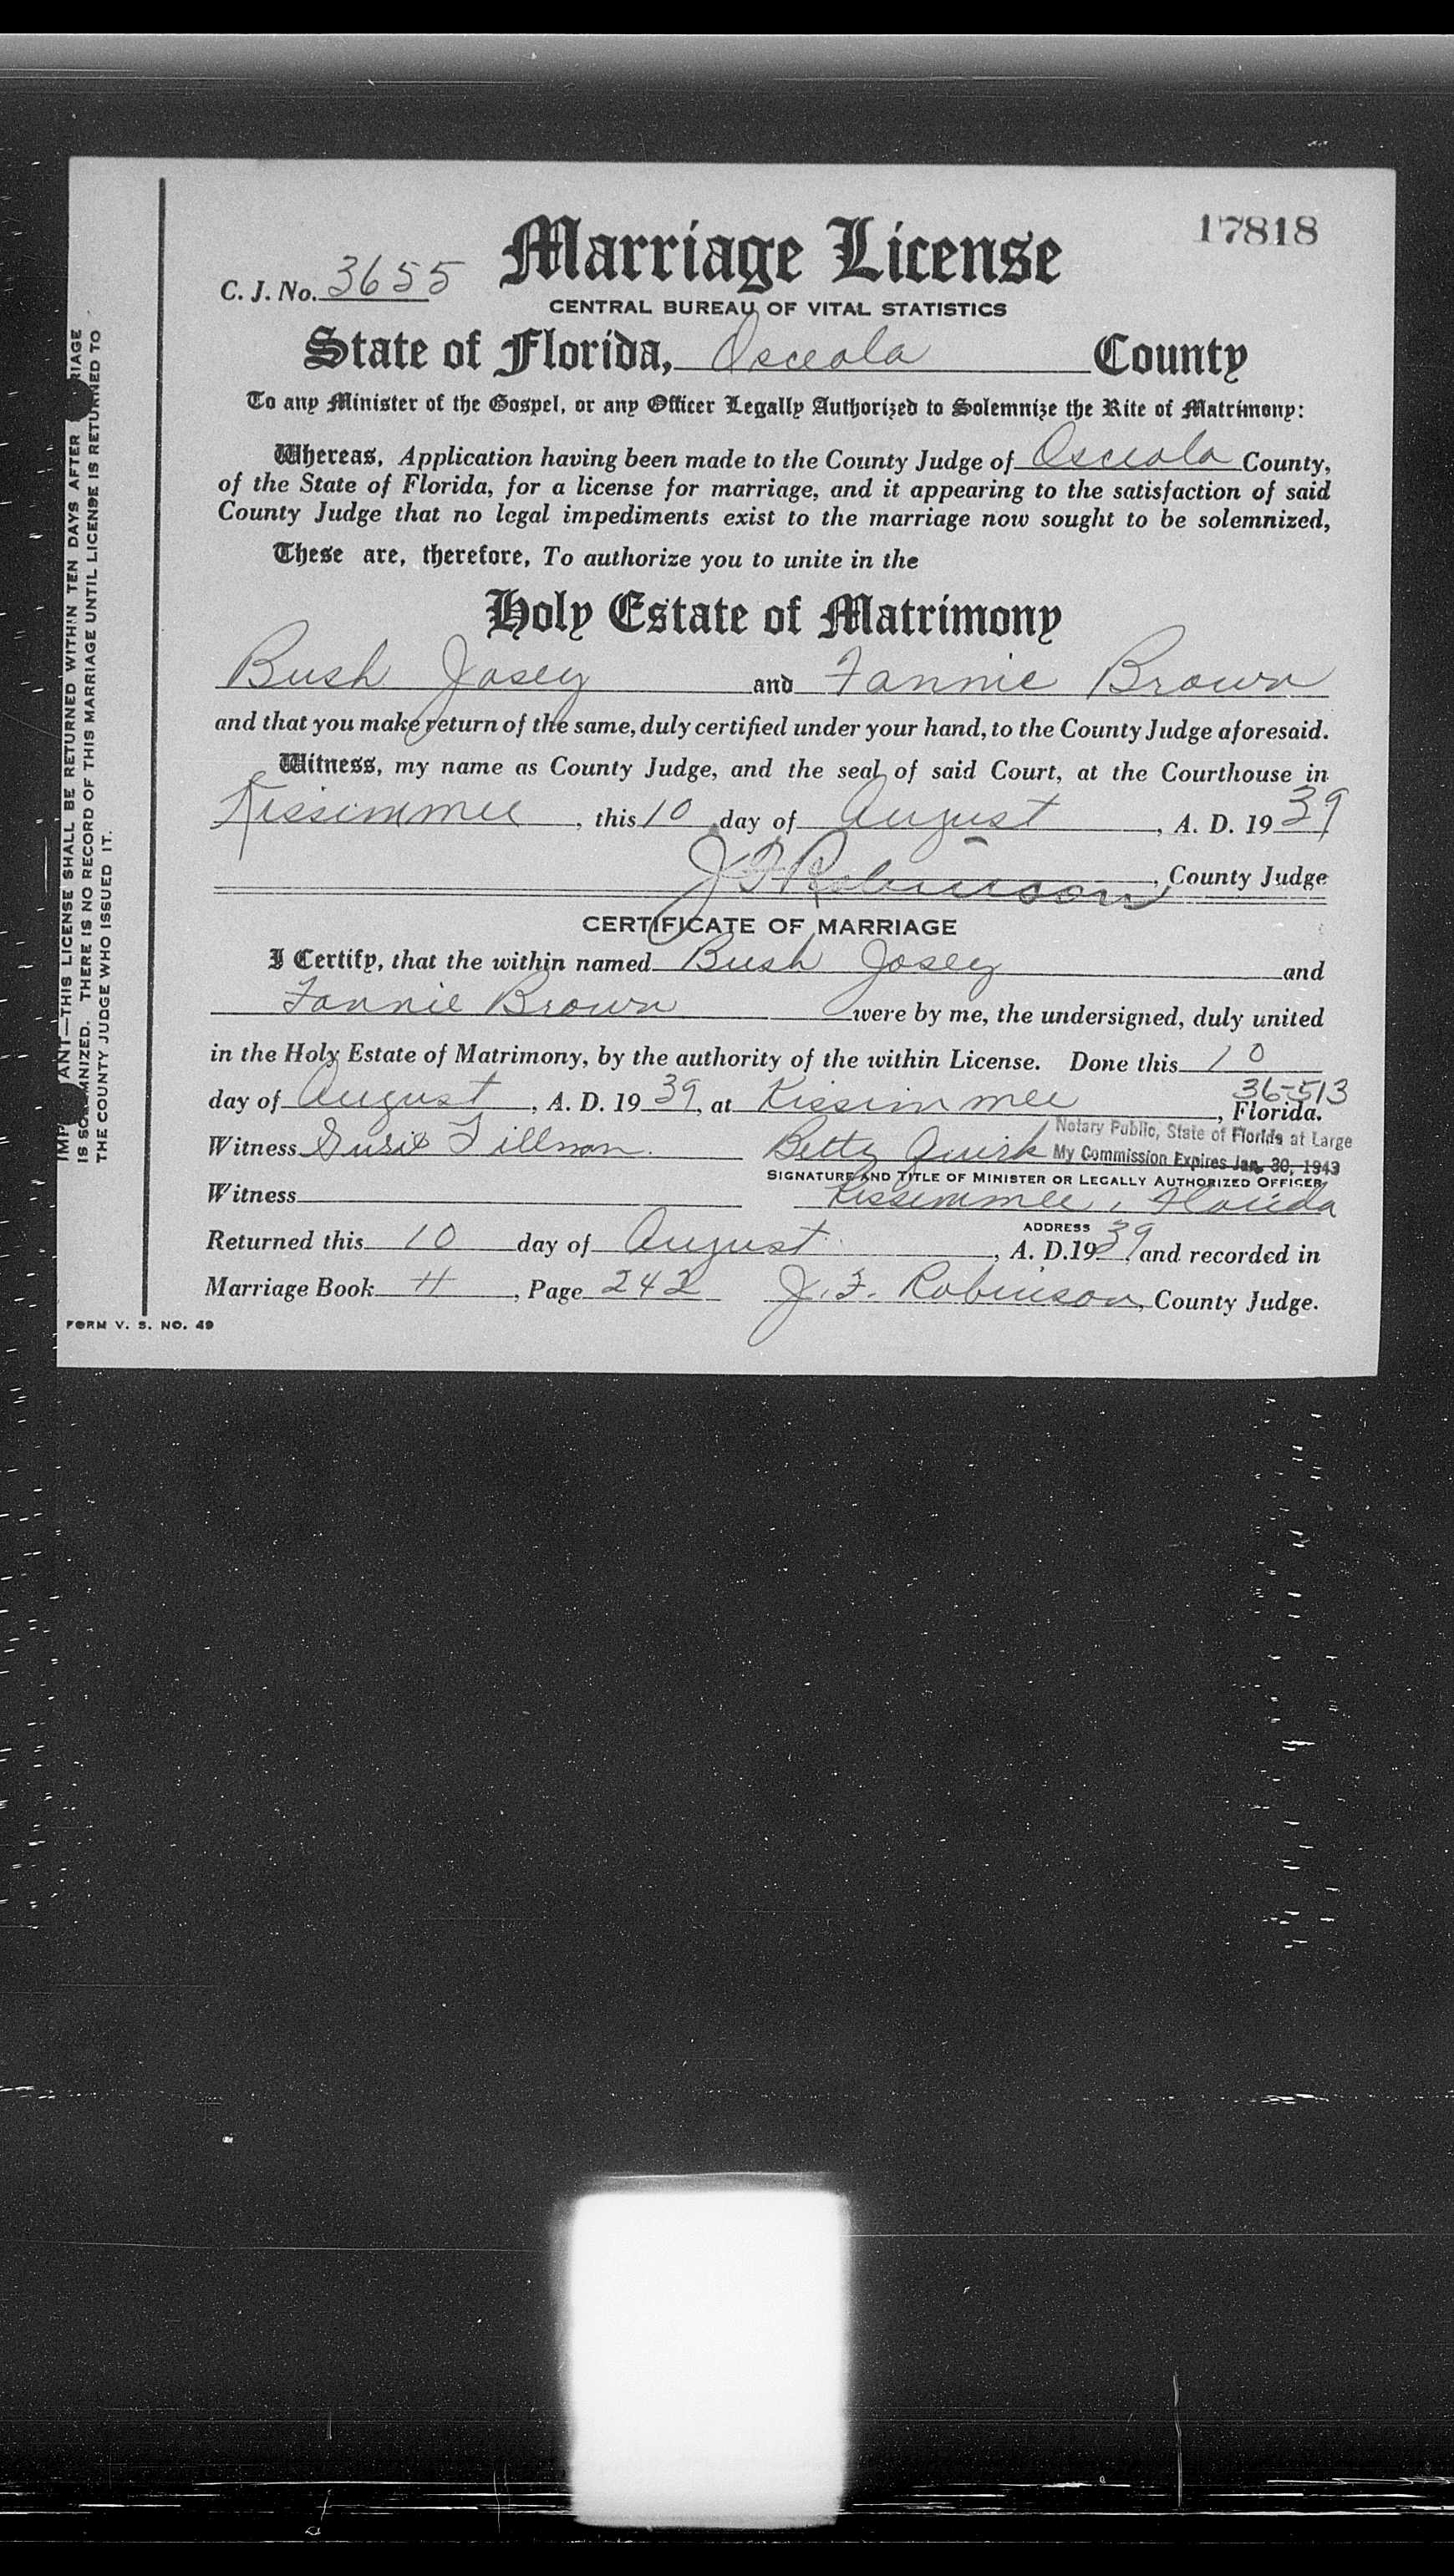 17818
Marriage License
C. J. No. 3655
CENTRAL BUREAU OF VITAL STATISTICS
State of Florida, Osceola County
To any Minister of the Gospel, or any Officer Legally Authorized to Solemnize the Rite of Matrimony:
Whereas, Application having been made to the County Judge of Osceola County,
of the State of Florida, for a license for marriage, and it appearing to the satisfaction of said
County Judge that no legal impediments exist to the marriage now sought to be solemnized,
These are, therefore, To authorize you to unite in the
Holy Estate of Matrimony
Bush Josey and Fannie Brown
and that you make return of the same, duly certified under your hand, to the County Judge aforesaid.
Witness, my name as County Judge, and the seal of said Court, at the Courthouse in
Kissimmee, this 10 day of August, A. D. 1939
J F Robinson, County Judge
CERTIFICATE OF MARRIAGE
I Certify, that the within named Bush Josey and
Fannie Brown were by me, the undersigned, duly united
in the Holy Estate of Matrimony, by the authority of the within License. Done this 10
36-513
day of August, A. D. 1939, at Kissimmee, Florida.
Notary Public, State of Florida at Large
Witness Susie Tillman. Betty Quirk My Commission Expires Jan. 30, 1943
SIGNATURE AND TITLE OF MINISTER OR LEGALLY AUTHORIZED OFFICER
Witness Kissimmee, Florida
ADDRESS
Returned this 10 day of August, A. D. 1939, and recorded in
Marriage Book H, Page 242 J. F. Robinson, County Judge.
FORM V. S. NO. 49
IMP ANT—THIS LICENSE SHALL BE RETURNED WITHIN TEN DAYS AFTER RIAGE
IS SOLEMNIZED. THERE IS NO RECORD OF THIS MARRIAGE UNTIL LICENSE IS RETURNED TO
THE COUNTY JUDGE WHO ISSUED IT.